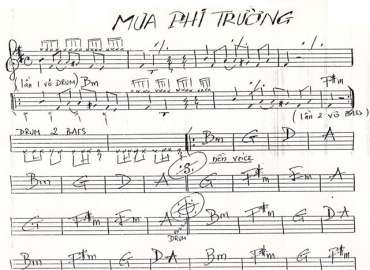 MƯA PHI TRƯỜNG
(lần 1 vô DRUM) Bm
F#m
(lần 2 vô BASS)
DRUM 2 BARS Bm G D A
ĐẾN VOICE
Bm G D A :S: G F#m Em Bm
G F#m Em A Bm F#m G D-A
DRUM
Bm F#m G D-A Bm F#m G D-A